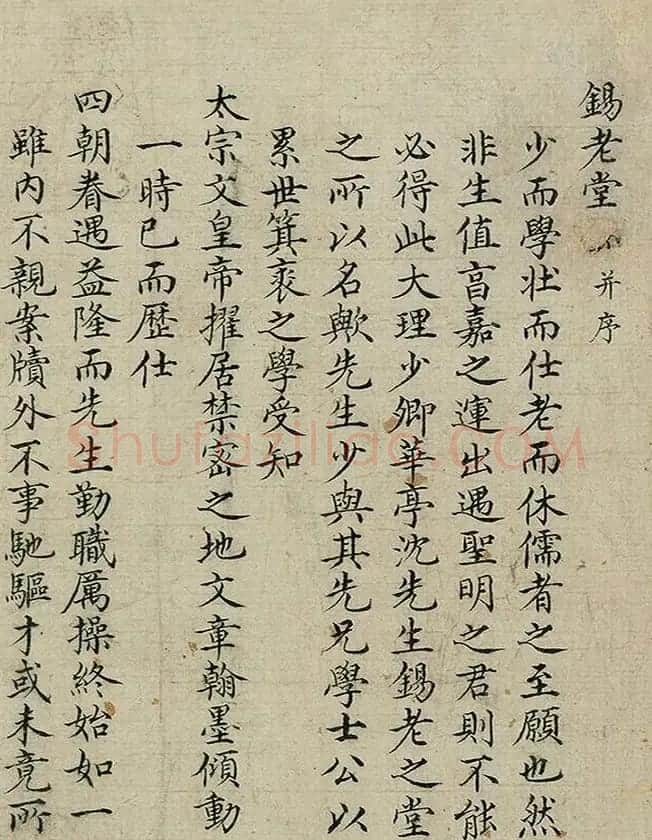 錫老堂 并序
少而學壯而仕老而休儒者之至願也然
非生值亯嘉之運出遇聖明之君則不能
必得此大理少卿華亭沈先生錫老之堂
之所以名歟先生少與其先兄學士公以
累世箕裘之學受知
太宗文皇帝擢居禁密之地文章翰墨傾動
一時已而歷仕
四朝眷遇益隆而先生勤職厲操終始如一
雖內不親案牘外不事馳驅才或未竟所
Shufaziliao.COM